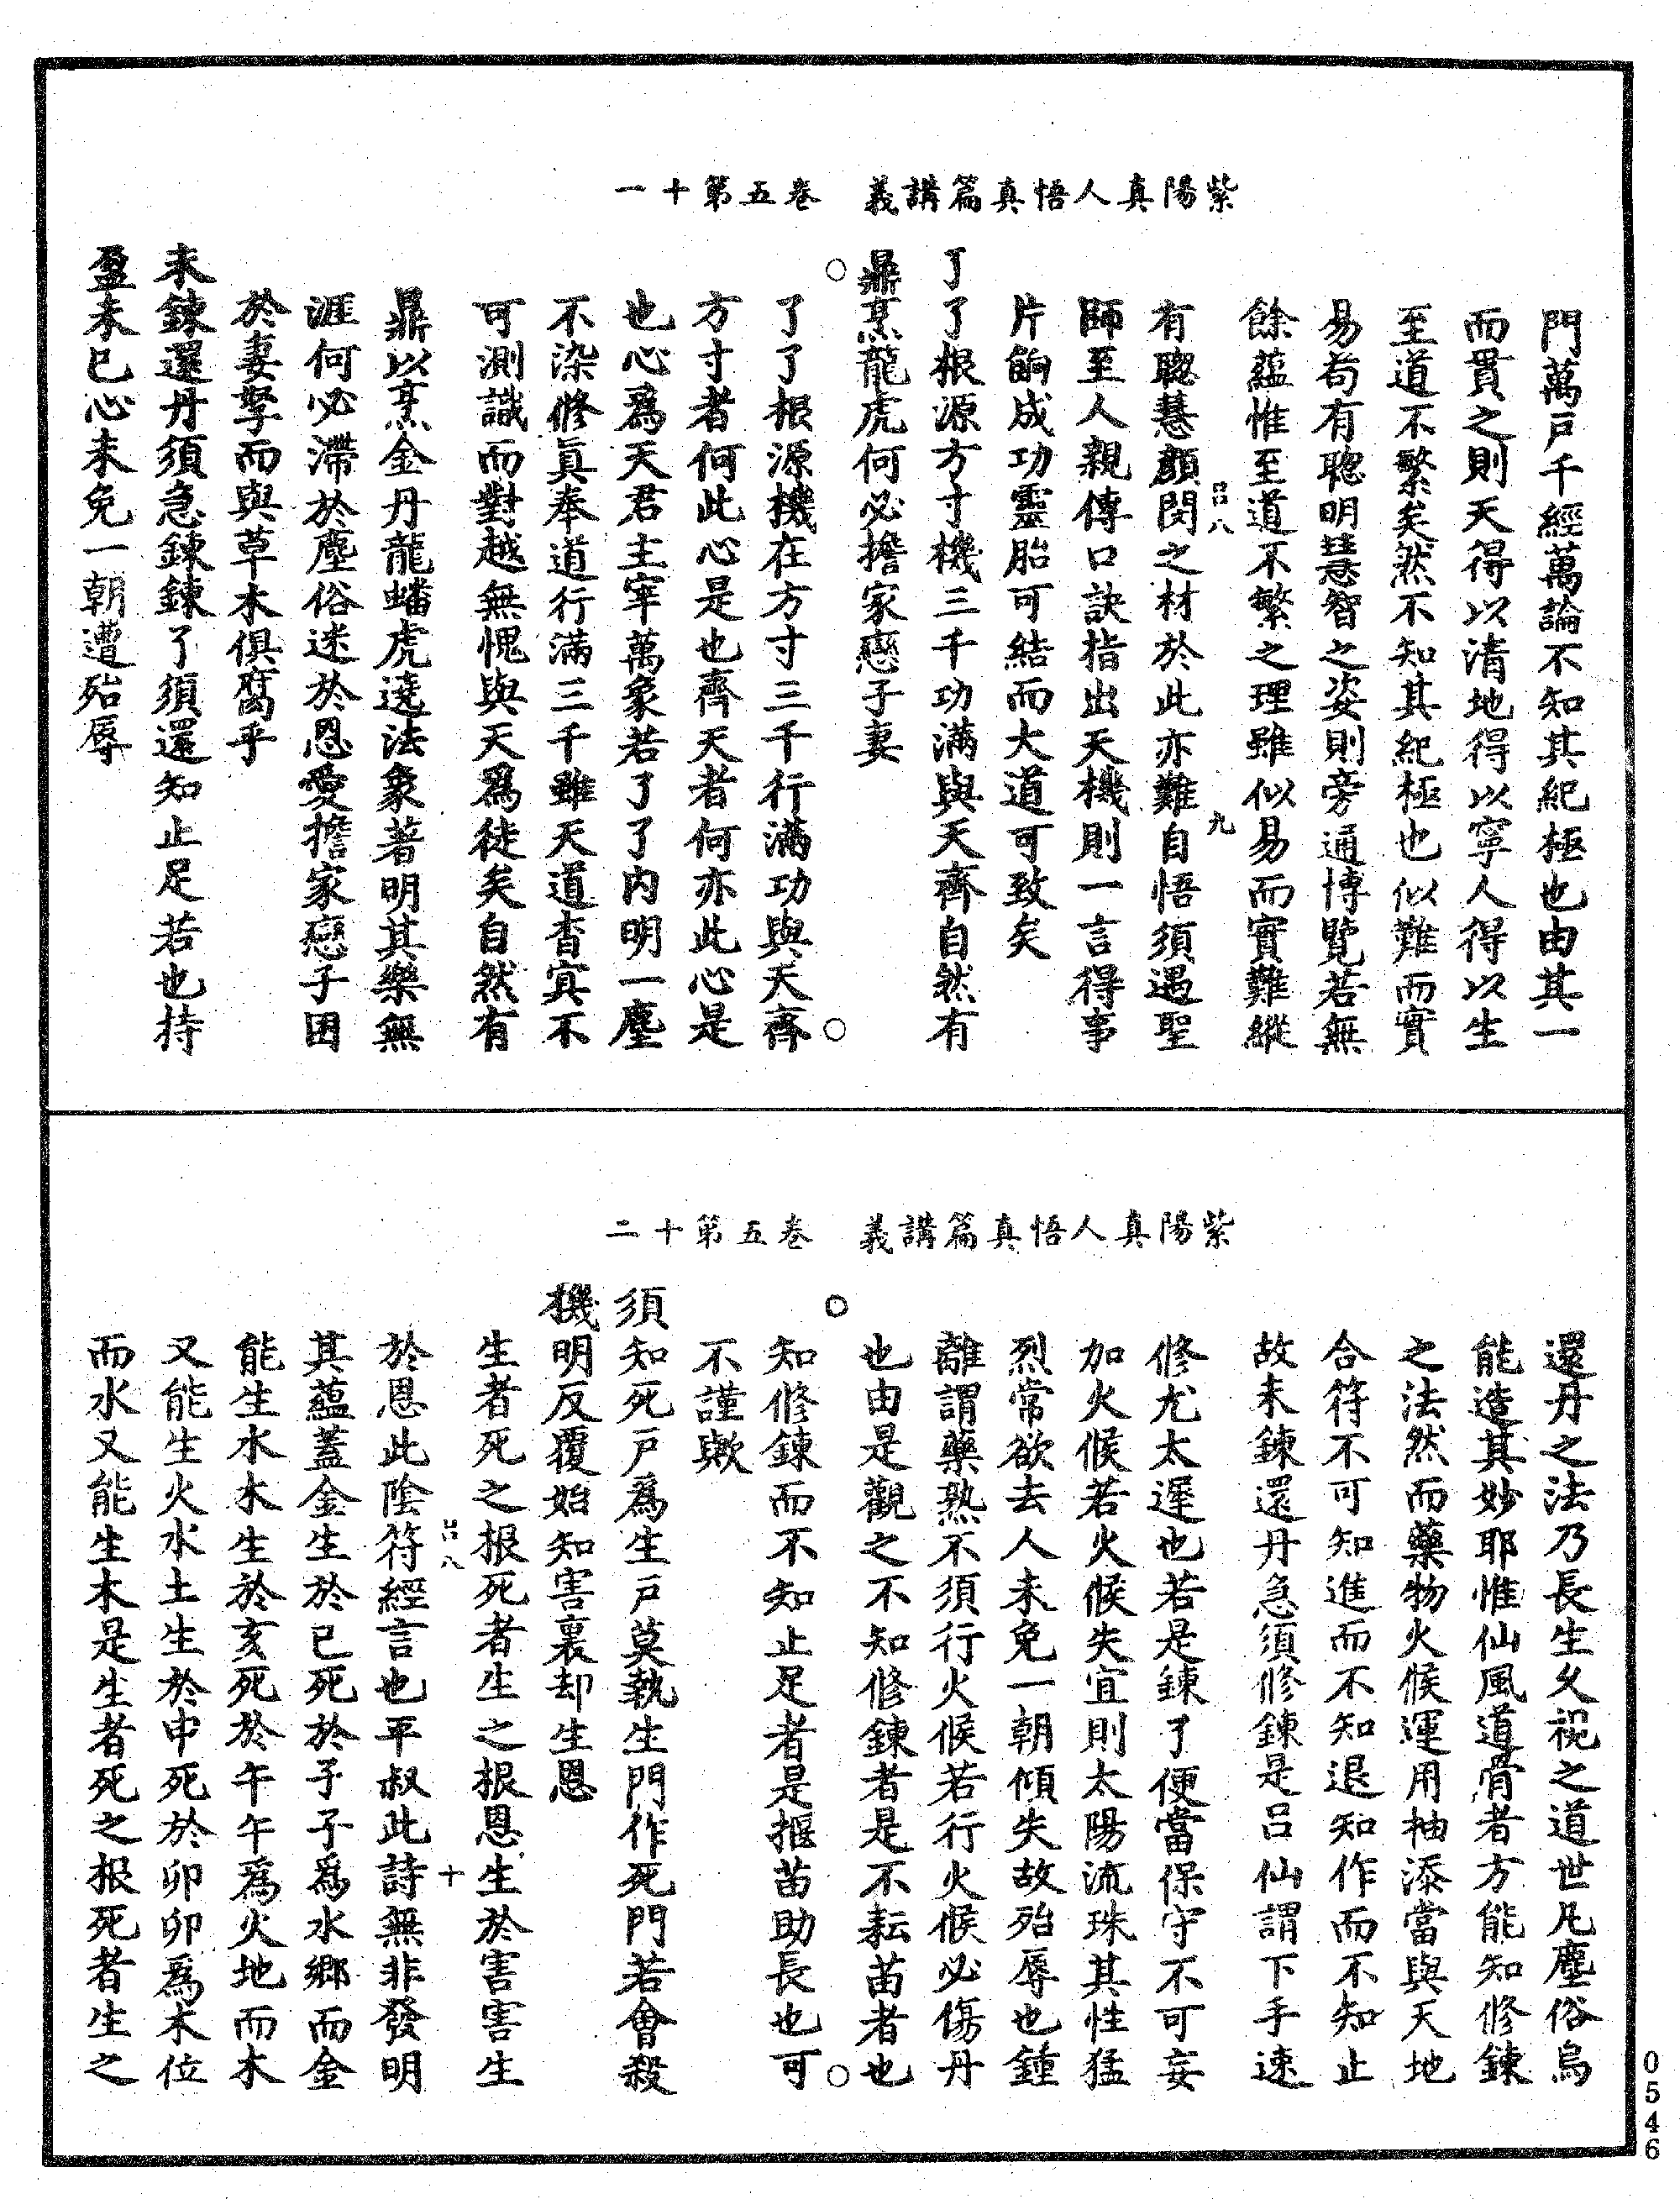 紫陽真人悟真篇講義　卷五第十一
門萬戸千經萬論不知其紀極也由其一
而貫之則天得以清地得以寧人得以生
至道不繁矣然不知其紀極也似難而實
易苟有聰明慧智之姿則旁通博覽若無
餘蘊惟至道不繁之理雖似易而實難縱
八　九
有聰慧顏閔之材於此亦難自悟須遇聖
師至人親傳口訣指出天機則一言得事
片餉成功靈胎可結而大道可致矣
了了根源方寸機三千功滿與天齊自然有
鼎烹龍虎何必擔家戀子妻
○　○
了了根源機在方寸三千行滿功與天齊
方寸者何此心是也齊天者何亦此心是
也心爲天君主宰萬象若了了内明一塵
不染修眞奉道行滿三千雖天道杳冥不
可測識而對越無愧與天爲徒矣自然有
鼎以烹金丹龍蟠虎遶法象著明其樂無
涯何必滯於塵俗迷於恩愛擔家戀子困
於妻孥而與草木俱腐乎
未鍊還丹須急鍊鍊了須還知止足若也持
盈未已心未免一朝遭殆辱
紫陽真人悟真篇講義　卷五第十二
還丹之法乃長生久視之道世凡塵俗烏
能造其妙耶惟仙風道骨者方能知修鍊
之法然而藥物火候運用抽添當與天地
合符不可知進而不知退知作而不知止
故未鍊還丹急須修鍊是吕仙謂下手速
修尤太遲也若是鍊了便當保守不可妄
加火候若火候失宜則太陽流珠其性猛
烈常欲去人未免一朝傾失故殆辱也鍾
離謂藥熟不須行火候若行火候必傷丹
也由是觀之不知修鍊者是不耘苗者也
○　○
知修鍊而不知止足者是揠苗助長也可
不謹歟
須知死戸爲生戸莫執生門作死門若會殺
機明反覆始知害裏却生恩
生者死之根死者生之根恩生於害害生
八　十
於恩此陰符經言也平叔此詩無非發明
其蘊蓋金生於巳死於子子爲水鄉而金
能生水木生於亥死於午午爲火地而木
又能生火水土生於申死於卯卯爲木位
而水又能生木是生者死之根死者生之
0546